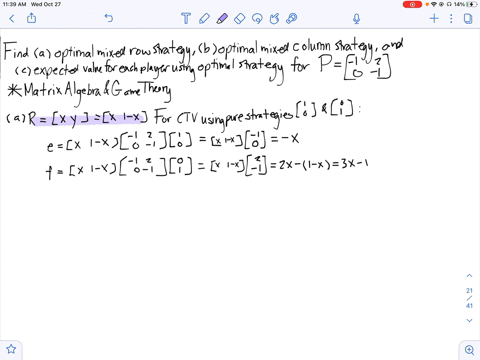 11:39 AM Wed Oct 27
14%
Find (a) optimal mixed row strategy, (b) optimal mixed column strategy, and
(c) expected value for each player using optimal strategy for P = [-1 2
0 -1]
* Matrix Algebra & Game Theory
(a) R = [x y] = [x 1-x] For CTV using pure strategies [1 0] & [0 1]:
e = [x 1-x] [-1 2 0 -1] [1 0] = [x 1-x] [-1 0] = -x
f = [x 1-x] [-1 2 0 -1] [0 1] = [x 1-x] [2 -1] = 2x-(1-x) = 3x-1
21
/
41